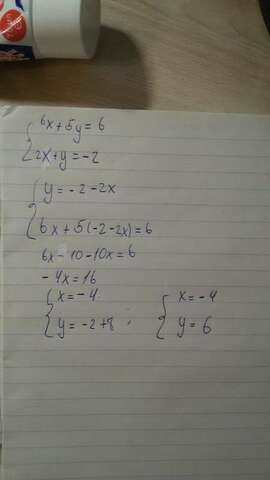 6x+5y=6
2x+y=-2
y=-2-2x
6x+5(-2-2x)=6
6x-10-10x=6
-4x=16
x=-4 x=-4
y=-2+8; y=6